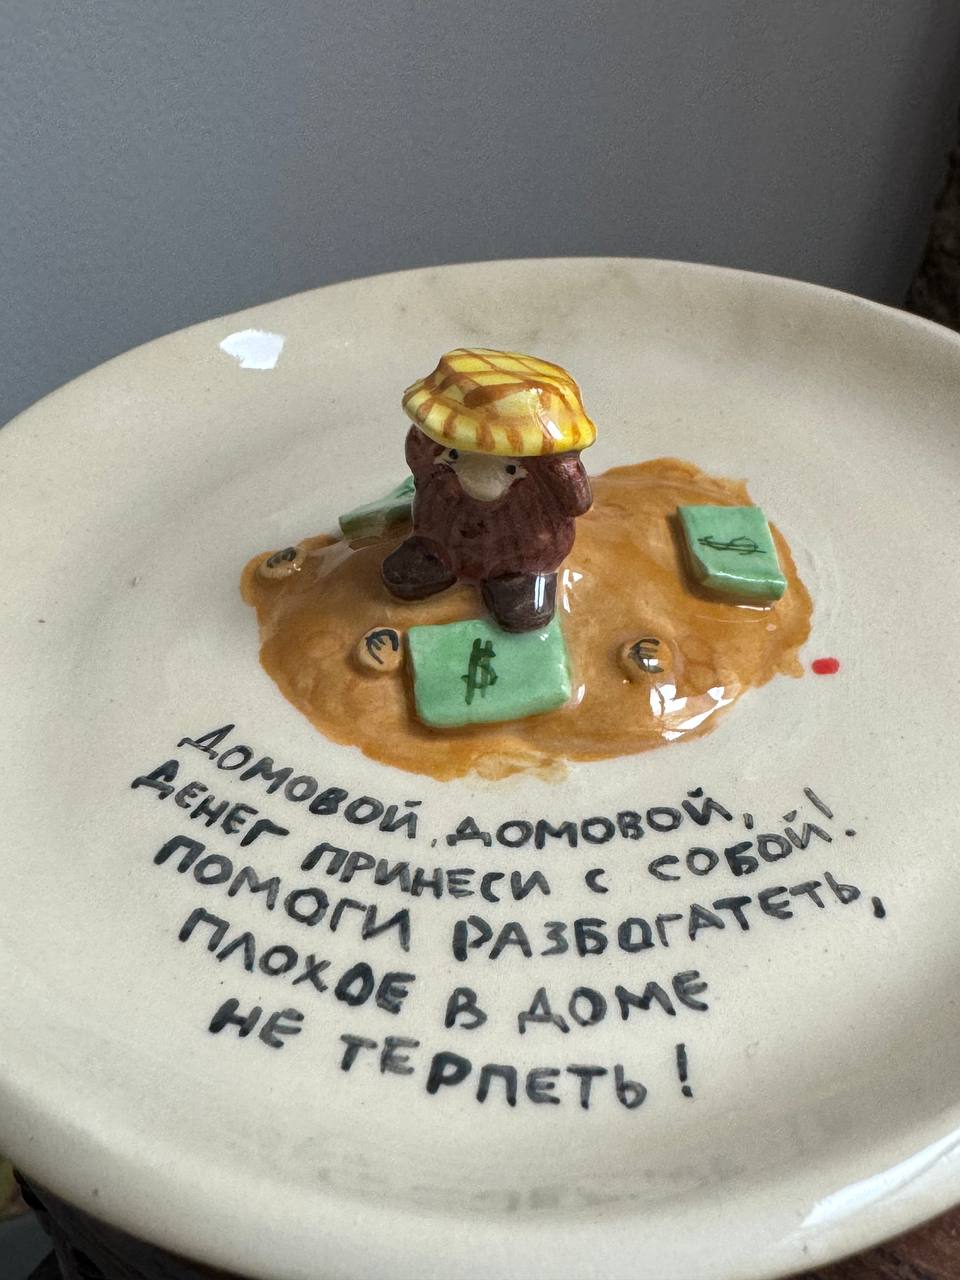 $
$
$
€
€
€
ДОМОВОЙ, ДОМОВОЙ,
ДЕНЕГ ПРИНЕСИ С СОБОЙ!
ПОМОГИ РАЗБОГАТЕТЬ,
ПЛОХОЕ В ДОМЕ
НЕ ТЕРПЕТЬ!